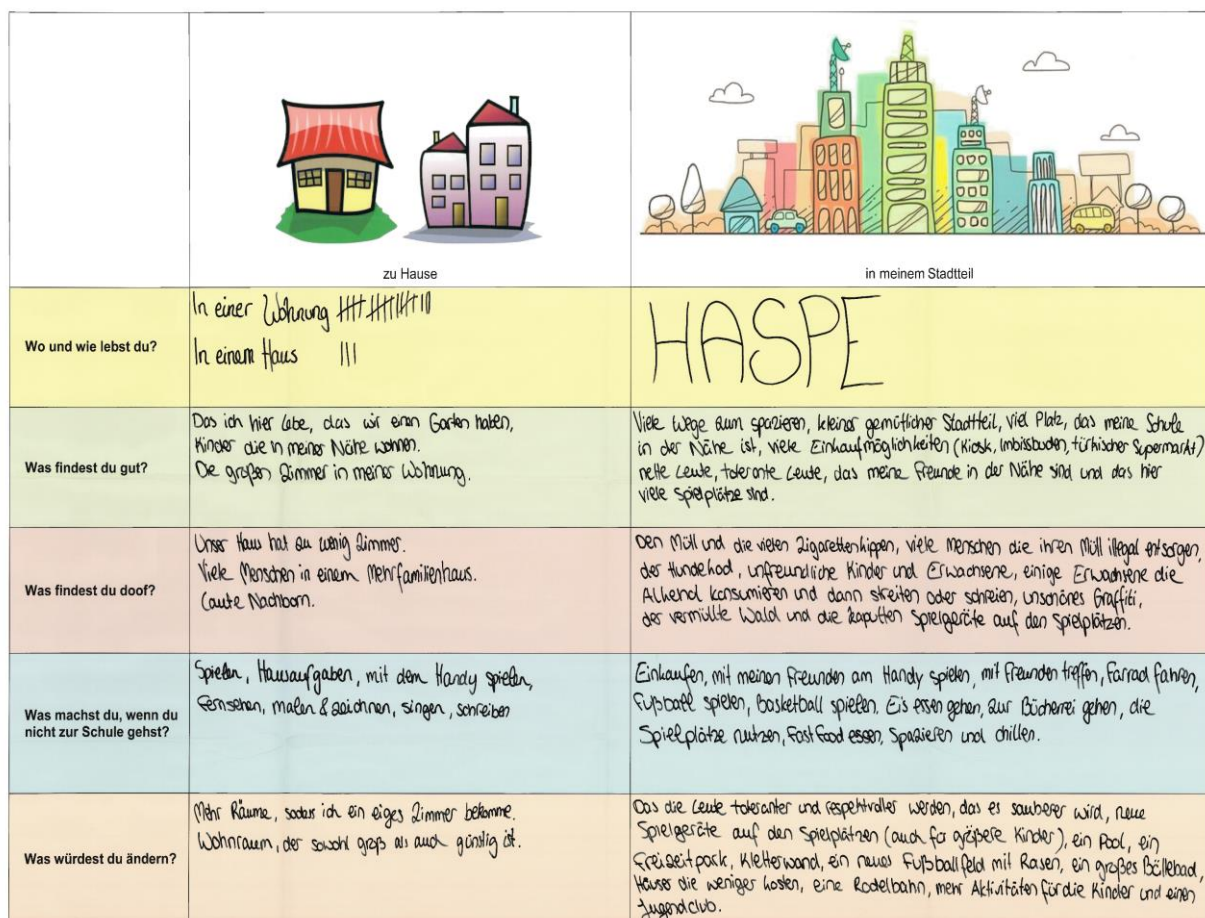 zu Hause
in meinem Stadtteil
Wo und wie lebst du?
In einer Wohnung
In einem Haus |||
HASPE
Was findest du gut?
Das ich hier lebe, das wir einen Garten haben,
Kinder die in meiner Nähe wohnen.
Die großen Zimmer in meiner Wohnung.
Viele Wege zum spazieren, kleiner gemütlicher Stadtteil, viel Platz, das meine Schule
in der Nähe ist, viele Einkaufmöglichkeiten (Kiosk, Imbissbuden, türkischer Supermarkt)
nette Leute, tolerante Leute, das meine Freunde in der Nähe sind und das hier
viele Spielplätze sind.
Was findest du doof?
Unser Haus hat zu wenig Zimmer.
Viele Menschen in einem Mehrfamilienhaus.
Laute Nachbarn.
Den Müll und die vielen Zigarettenkippen, viele Menschen die ihren Müll illegal entsorgen,
der Hundekod, unfreundliche Kinder und Erwachsene, einige Erwachsene die
Alkohol konsumieren und dann streiten oder schreien, unschönes Graffiti,
der vermüllte Wald und die kaputten Spielgeräte auf den Spielplätzen.
Was machst du, wenn du
nicht zur Schule gehst?
Spielen, Hausaufgaben, mit dem Handy spielen,
Fernsehen, malen & zeichnen, singen, schreiben
Einkaufen, mit meinen Freunden am Handy spielen, mit Freunden treffen, Farrad fahren,
Fußball spielen, Basketball spielen, Eis essen gehen, zur Bücherrei gehen, die
Spielplätze nutzen, Fast Food essen, Spazieren und chillen.
Was würdest du ändern?
Mehr Räume, sodass ich ein eiges Zimmer bekomme.
Wohnraum, der sowohl groß als auch günstig ist.
Das die Leute toleranter und respektvoller werden, das es sauberer wird, neue
Spielgeräte auf den Spielplätzen (auch für größere Kinder), ein Pool, ein
Freizeitpark, Kletterwand, ein neues Fußballfeld mit Rasen, ein großes Bällebad,
Häuser die weniger kosten, eine Rodelbahn, mehr Aktivitäten für die Kinder und einen
Jugendclub.